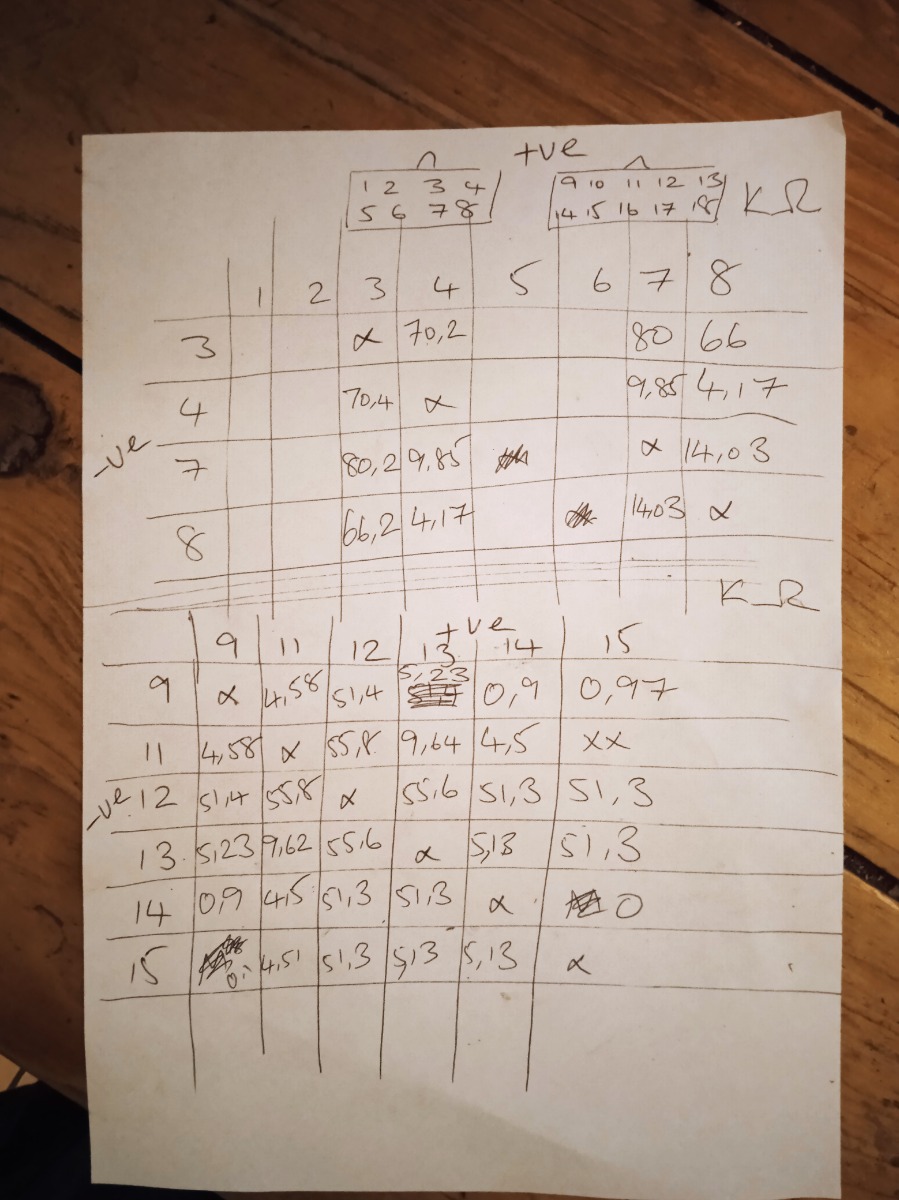 +ve
1 2 3 4 9 10 11 12 13
5 6 7 8 14 15 16 17 18 KΩ
1 2 3 4 5 6 7 8
3 α 70,2 80 66
4 70,4 α 9,85 4,17
-ve 7 80,2 9,85 α 14,03
8 66,2 4,17 14,03 α
KΩ
+ve
9 11 12 13 14 15
9 α 4,58 51,4 5,23 0,9 0,97
11 4,58 α 55,8 9,64 4,5 XX
-ve 12 51,4 55,8 α 55,6 51,3 51,3
13 5,23 9,62 55,6 α 5,13 51,3
14 0,9 4,5 51,3 51,3 α 0
15 4,51 51,3 5,13 5,13 α